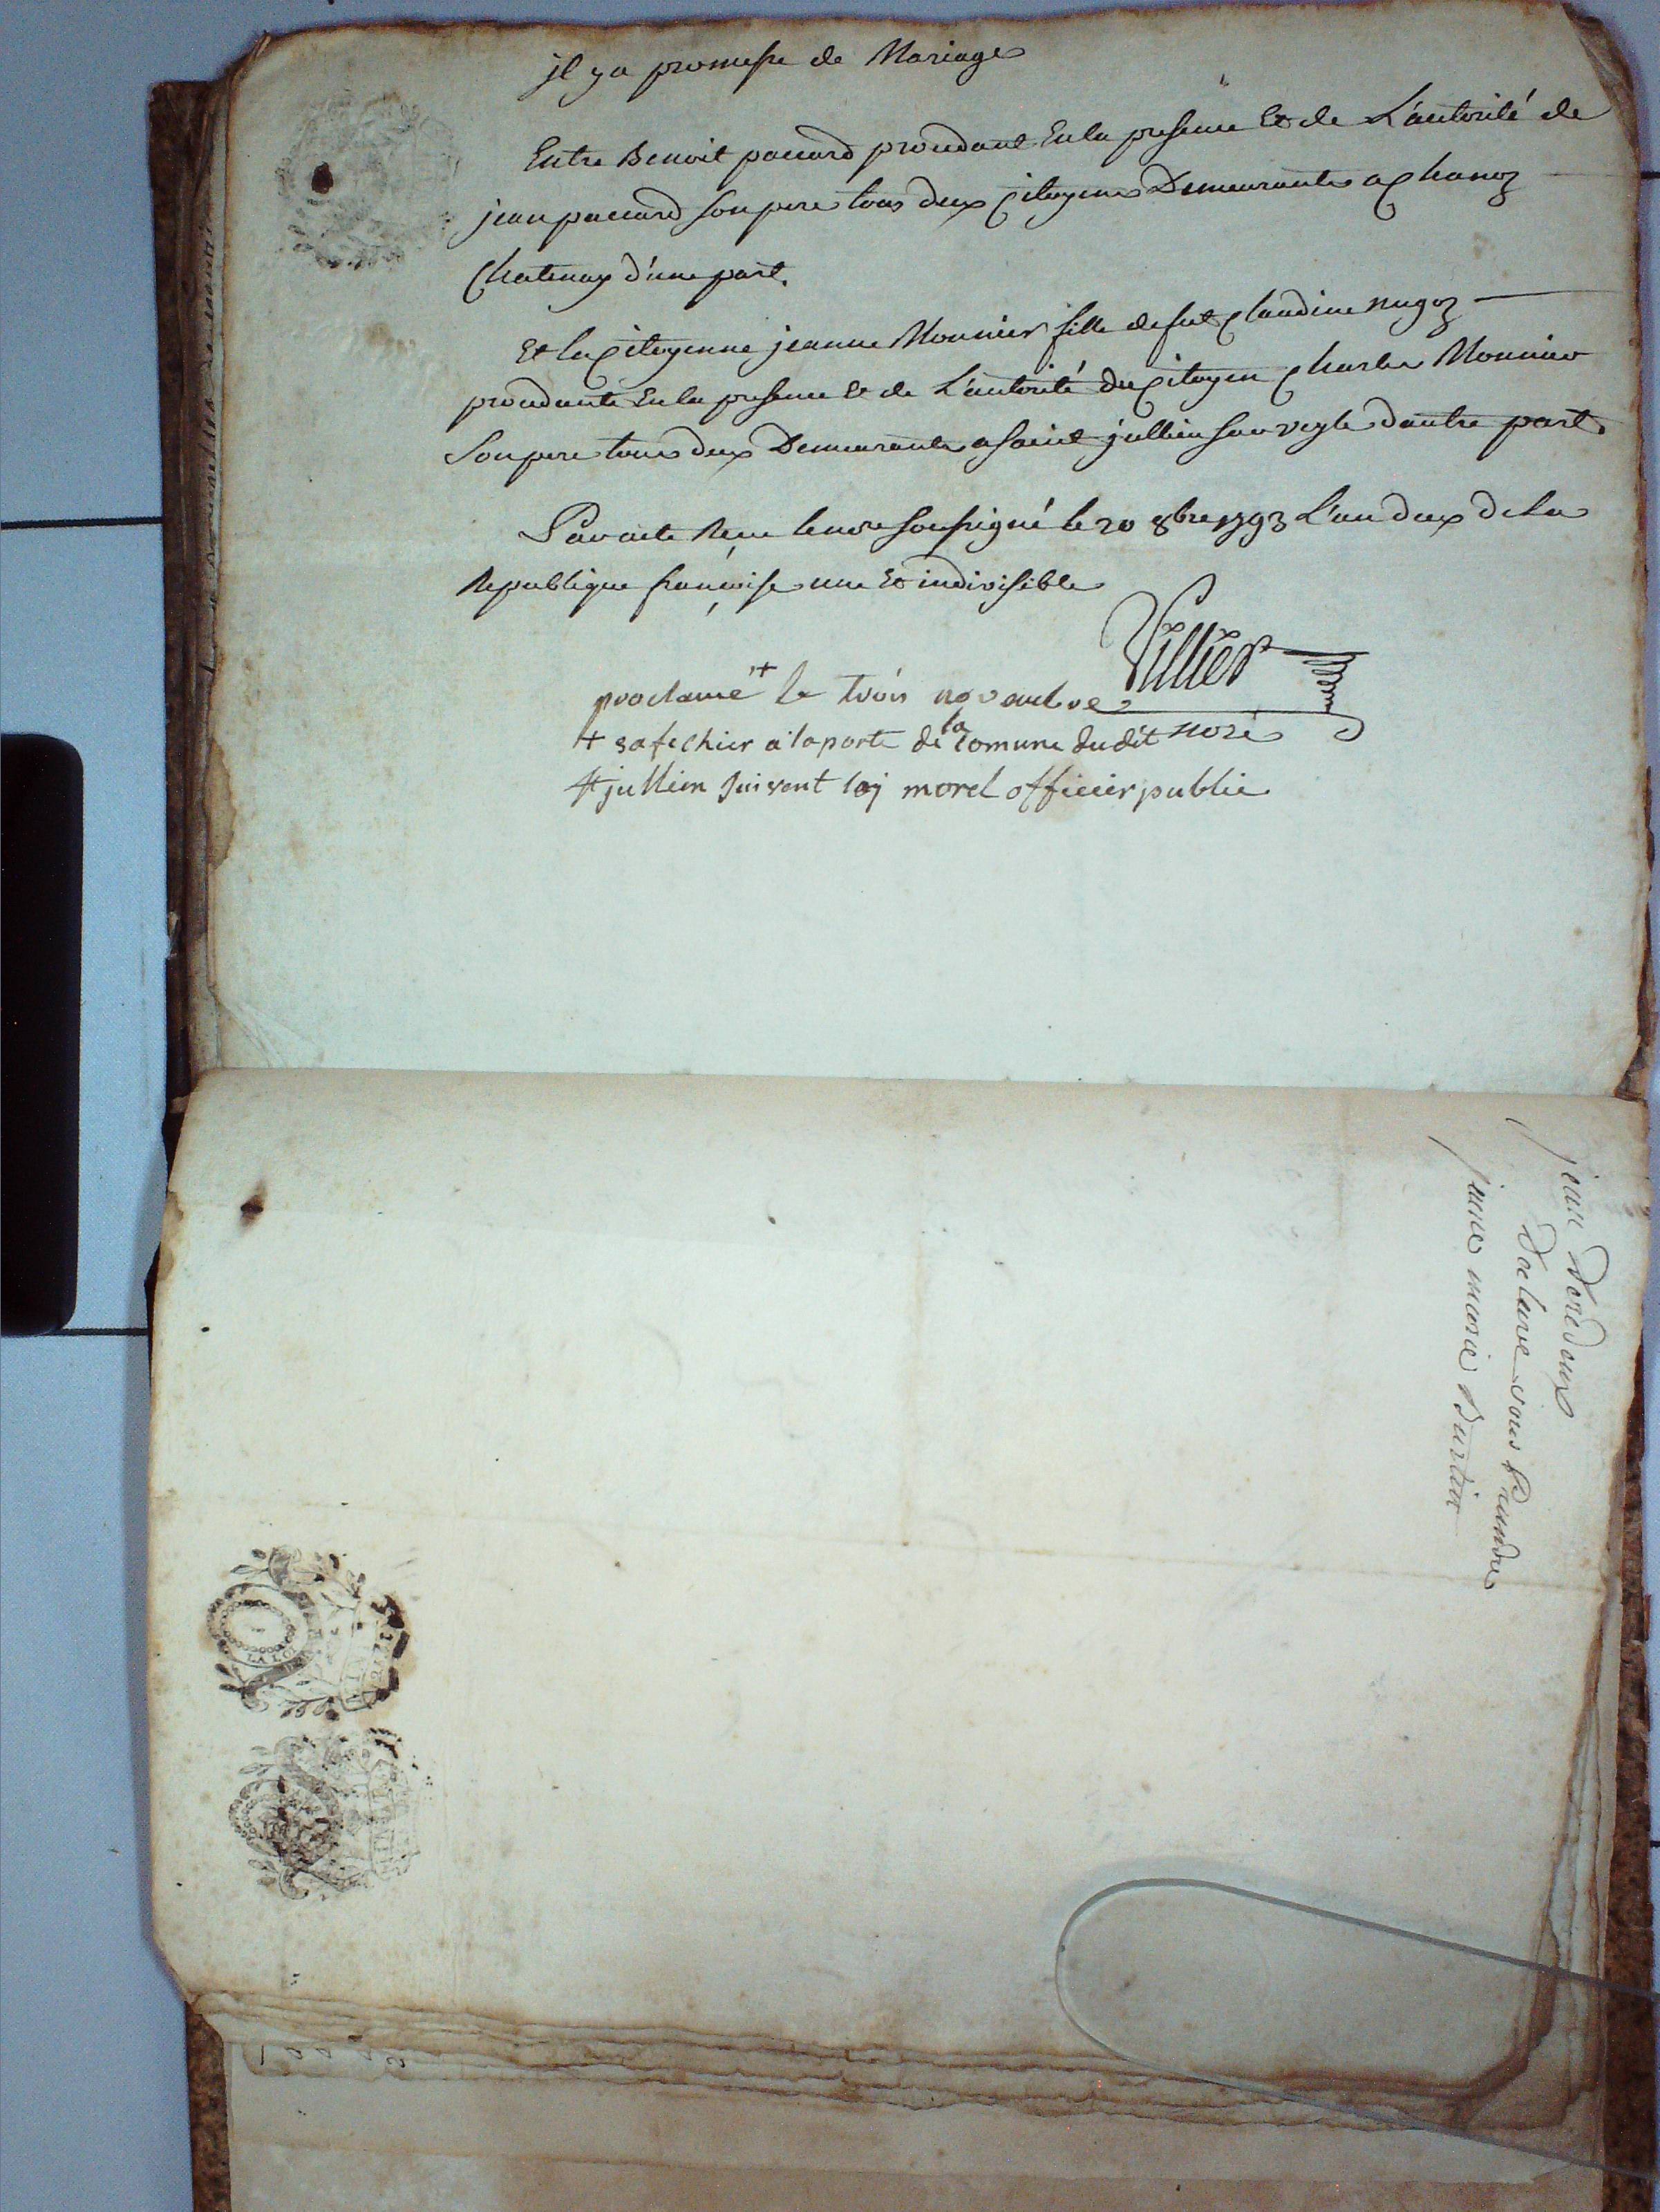 jl y a promesse de Mariage
Entre Benoit paccard procedant En la presence Et de L'autorité de
jean paccard son pere tous deux Citoyens Demeurants a Chanoz
Chatenay d'une part.
Et la Citoyenne jeanne Monnier fille de fut Claudine nugoz
procedante En la presence & de L'autorité du Citoyen Charles Monnier
Son pere tous deux Demeurants a saint jullien sur vesle d'autre part.
Par acte Recu le nore soussigné le 20 8bre 1793 L'an deux de La
Republique francaise une Et indivisible
Villier
proclamé + le trois novembre
nore
+ et afechier a la porte de la comune dudit
st jullien suivent loy morel officier public
jean
declare vous Prendre
jeanne marie Burtier
LA LOI